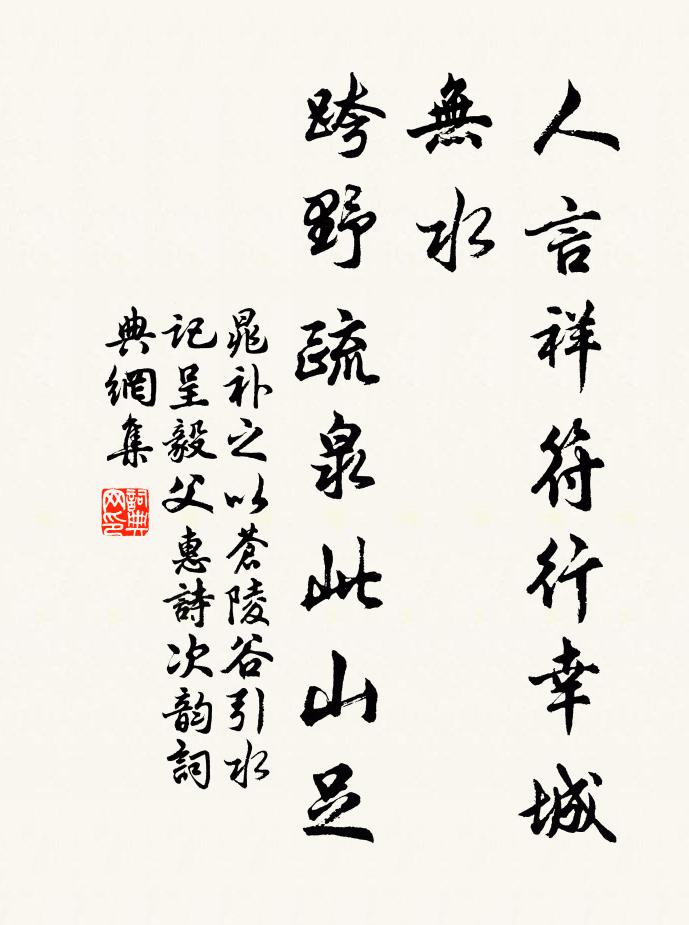 人言祥符行幸城
無水
跨野疏泉此山足
晁补之以蒼陵谷引水
记呈毅父惠詩次韵詞
典網集
詞典网印